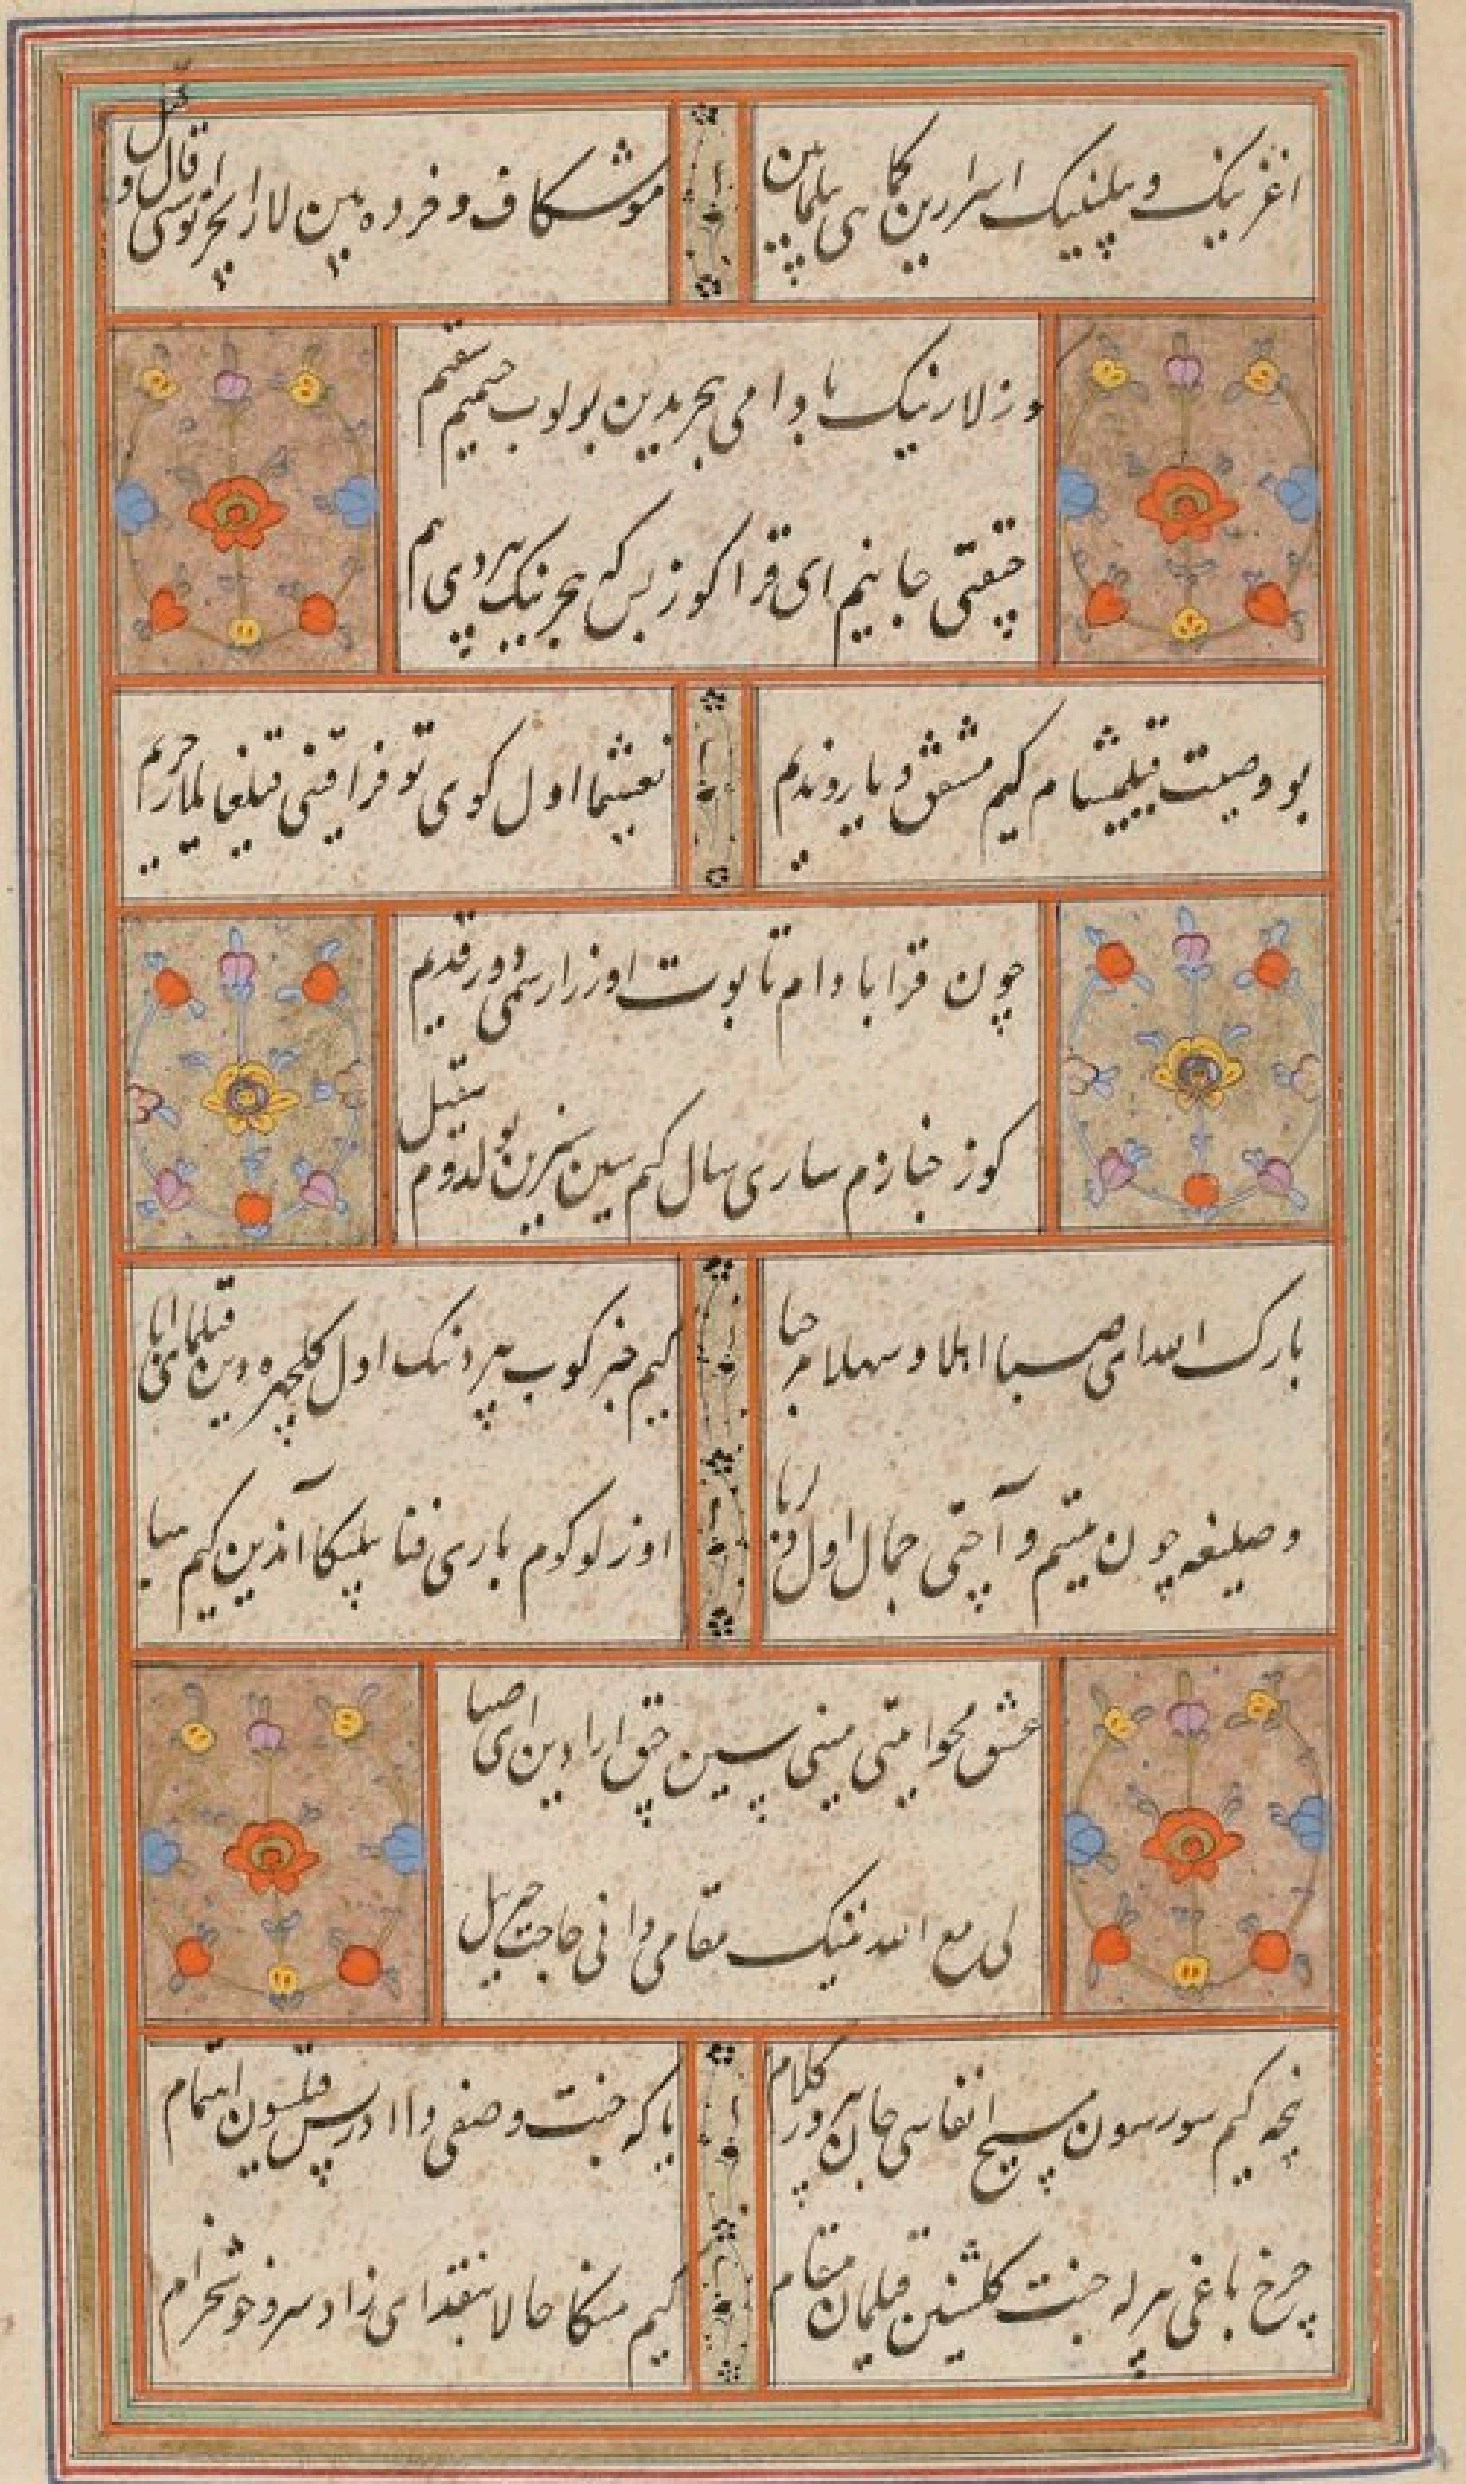 اغزینک و بیلینیک اسرارین کاهی بیلمایین
موشکاف و خرده بین لار ایچره توسی قال و قیل
وز لارنیک بادامی هجریدین بولوب جسمیم سقیم
چیقتی جانیم ای قرا کوز بس که هجرینک بیردی هم
بو وصیت قیلمیشام کیم مشفق و یاروندیم
نعشیما اول کوی توفراقینی قیلغایلار حریم
چون قرا بادام تابوت اوزرا رسمی دور قدیم
کوز جنازم ساری سال کیم سین سیزین اولدوم سقیل
بارک الله ای صبا اهلا و سهلا مرحبا
کیم خبر کوب بیردنک اول کلچهره دین قیلمای ابا
وصلیغه چون یتیم و آچتی جمال اول دلربا
اوزلوکوم باری فنا بیلیکا آندین کیم سبا
عشق محو ایتتی مینی سین چق ارادین ای صبا
لی مع الله نینک مقامی دا نی حاجت جبرییل
نچه کیم سورسون مسیح انفاسی جان پرور کلام
یا که جنت وصفی دا ادریس قیلسون اهتمام
چرخ باغی بیرله جنت کلشنین قیلمان مقام
کیم منکا حالا بنقد ای زاد سرو خوشخرام